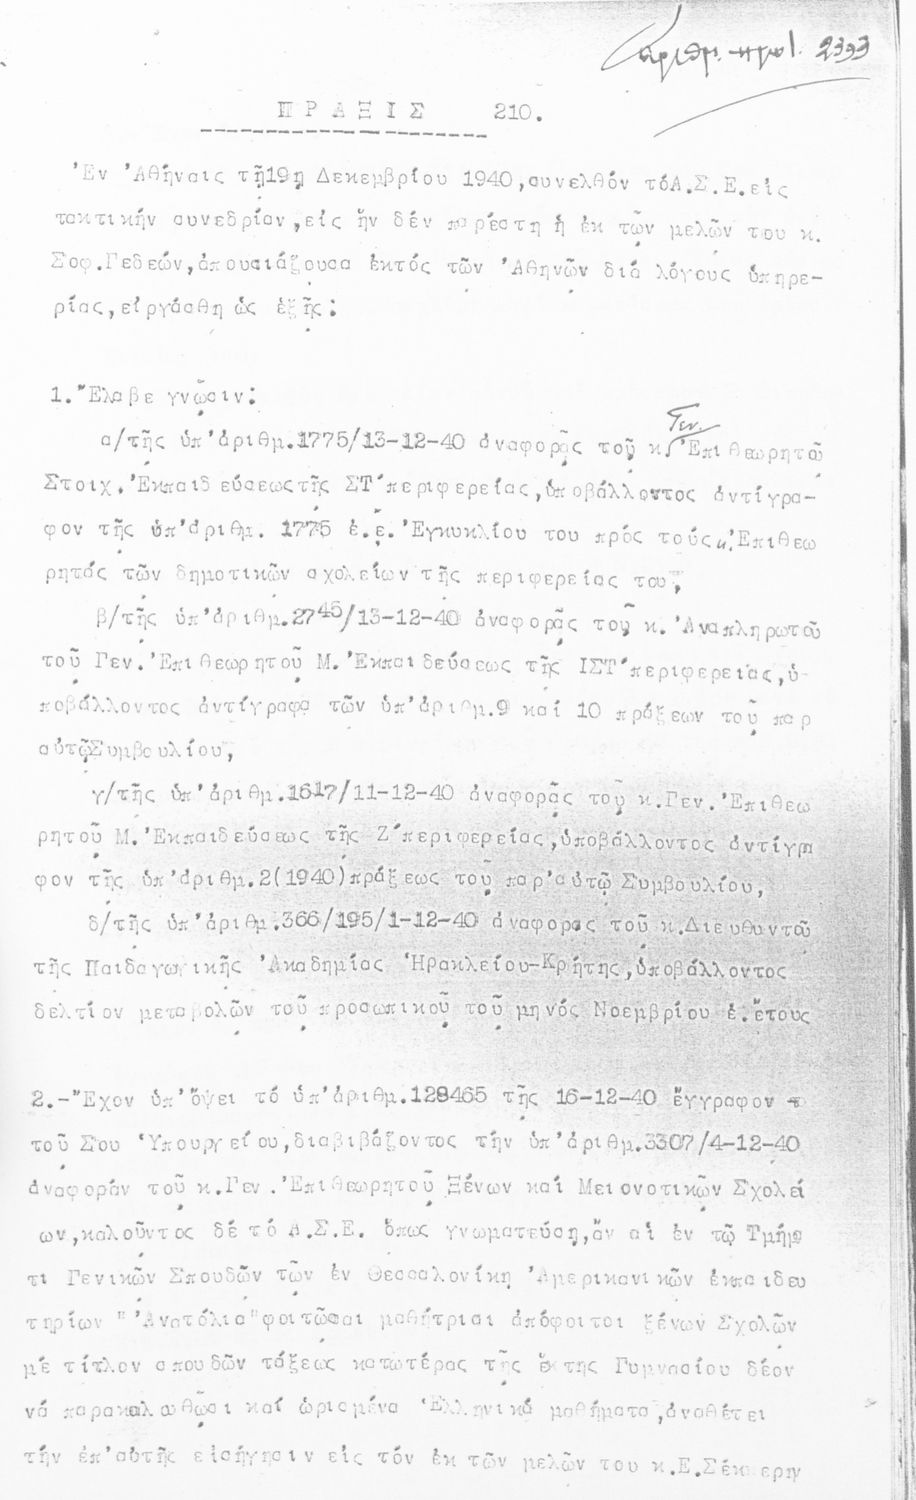 αριθμ. πρωτ. 2393
ΠΡΑΞΙΣ 210.
Ἐν Ἀθήναις τῇ 19ῃ Δεκεμβρίου 1940, συνελθόν τό Α.Σ.Ε. εἰς
τακτικήν συνεδρίαν, εἰς ἥν δέν παρέστη ἡ ἐκ τῶν μελῶν του κ.
Σοφ. Γεδεών, ἀπουσιάζουσα ἐκτός τῶν Ἀθηνῶν διά λόγους ὑπηρε-
σίας, εἰργάσθη ὡς ἑξῆς:
1. Ἔλαβε γνῶσιν:
α/τῆς ὑπ' ἀριθμ. 1775/13-12-40 ἀναφορᾶς τοῦ κ. Γεν. Ἐπιθεωρητοῦ
Στοιχ. Ἐκπαιδεύσεως τῆς ΣΤ' περιφερείας, ὑποβάλλοντος ἀντίγρα-
φον τῆς ὑπ' ἀριθμ. 1775 ἐ.ἔ. Ἐγκυκλίου του πρός τούς κ. Ἐπιθεω
ρητάς τῶν δημοτικῶν σχολείων τῆς περιφερείας του,
β/τῆς ὑπ' ἀριθμ. 2745/13-12-40 ἀναφορᾶς τοῦ κ. Ἀναπληρωτοῦ
τοῦ Γεν. Ἐπιθεωρητοῦ Μ. Ἐκπαιδεύσεως τῆς ΙΣΤ' περιφερείας, ὑ-
ποβάλλοντος ἀντίγραφα τῶν ὑπ' ἀριθμ. 9 καί 10 πράξεων τοῦ παρ
αὐτῷ Συμβουλίου,
γ/τῆς ὑπ' ἀριθμ. 1617/11-12-40 ἀναφορᾶς τοῦ κ. Γεν. Ἐπιθεω
ρητοῦ Μ. Ἐκπαιδεύσεως τῆς Ζ' περιφερείας, ὑποβάλλοντος ἀντίγρα
φον τῆς ὑπ' ἀριθμ. 2(1940) πράξεως τοῦ παρ' αὐτῷ Συμβουλίου,
δ/τῆς ὑπ' ἀριθμ. 366/195/1-12-40 ἀναφορᾶς τοῦ κ. Διευθυντοῦ
τῆς Παιδαγωγικῆς Ἀκαδημίας Ἡρακλείου-Κρήτης, ὑποβάλλοντος
δελτίον μεταβολῶν τοῦ προσωπικοῦ τοῦ μηνός Νοεμβρίου ἐ. ἔτους
2.- Ἔχον ὑπ' ὄψει τό ὑπ' ἀριθμ. 128465 τῆς 16-12-40 ἔγγραφον
τοῦ Σου Ὑπουργείου, διαβιβάζοντος τήν ὑπ' ἀριθμ. 3307/4-12-40
ἀναφοράν τοῦ κ. Γεν. Ἐπιθεωρητοῦ Ξένων καί Μειονοτικῶν Σχολεί
ων, καλοῦντος δέ τό Α.Σ.Ε. ὅπως γνωματεύσῃ, ἄν αἱ ἐν τῷ Τμήμα
τι Γενικῶν Σπουδῶν τῶν ἐν Θεσσαλονίκῃ Ἀμερικανικῶν ἐκπαιδευ
τηρίων "Ἀνατόλια" φοιτῶσαι μαθήτριαι ἀπόφοιτοι ξένων Σχολῶν
μέ τίτλον σπουδῶν τάξεως κατωτέρας τῆς ἕκτης Γυμνασίου δέον
νά παρακολουθῶσι καί ὡρισμένα Ἑλληνικά μαθήματα, ἀναθέτει
τήν ἐπ' αὐτῆς εἰσήγησιν εἰς τόν ἐκ τῶν μελῶν του κ. Ε.